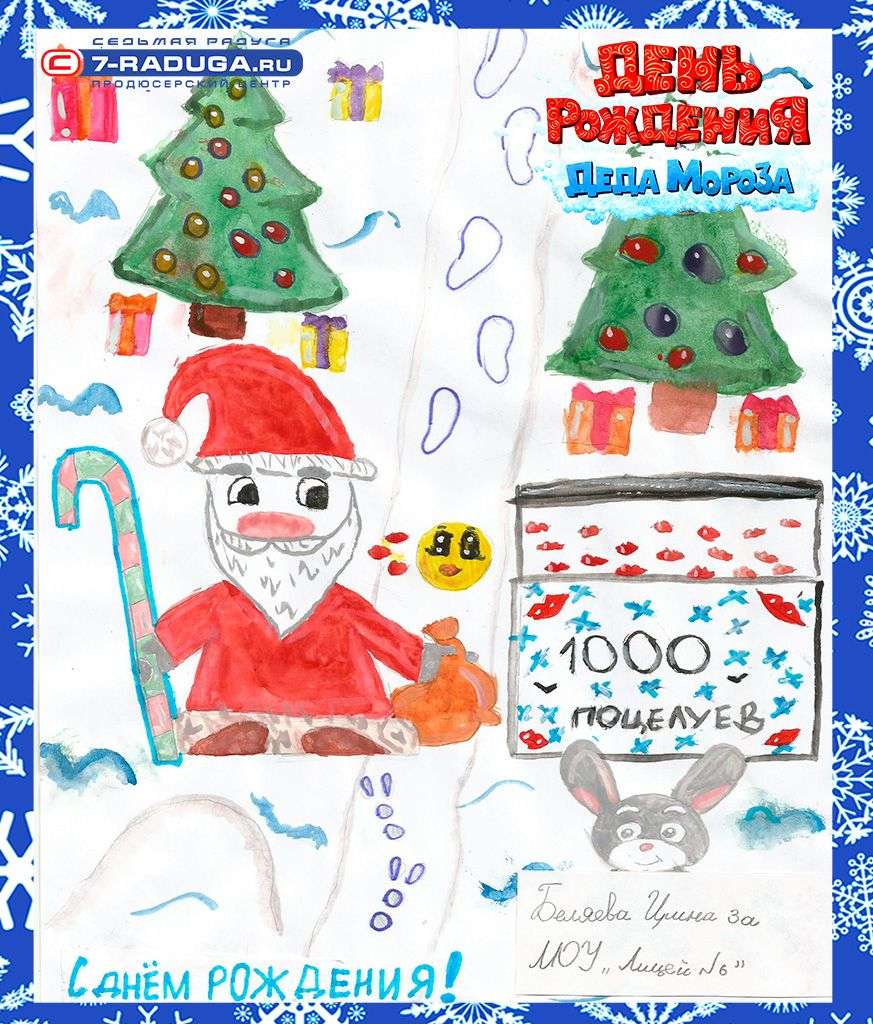 СЕДЬМАЯ РАДУГА
7-RADUGA.RU
ПРОДЮСЕРСКИЙ ЦЕНТР
ДЕНЬ
РОЖДЕНИЯ
ДЕДА МОРОЗА
1000
ПОЦЕЛУЕВ
Беляева Ирина 3а
МОУ „Лицей №6”
С ДНЁМ РОЖДЕНИЯ!